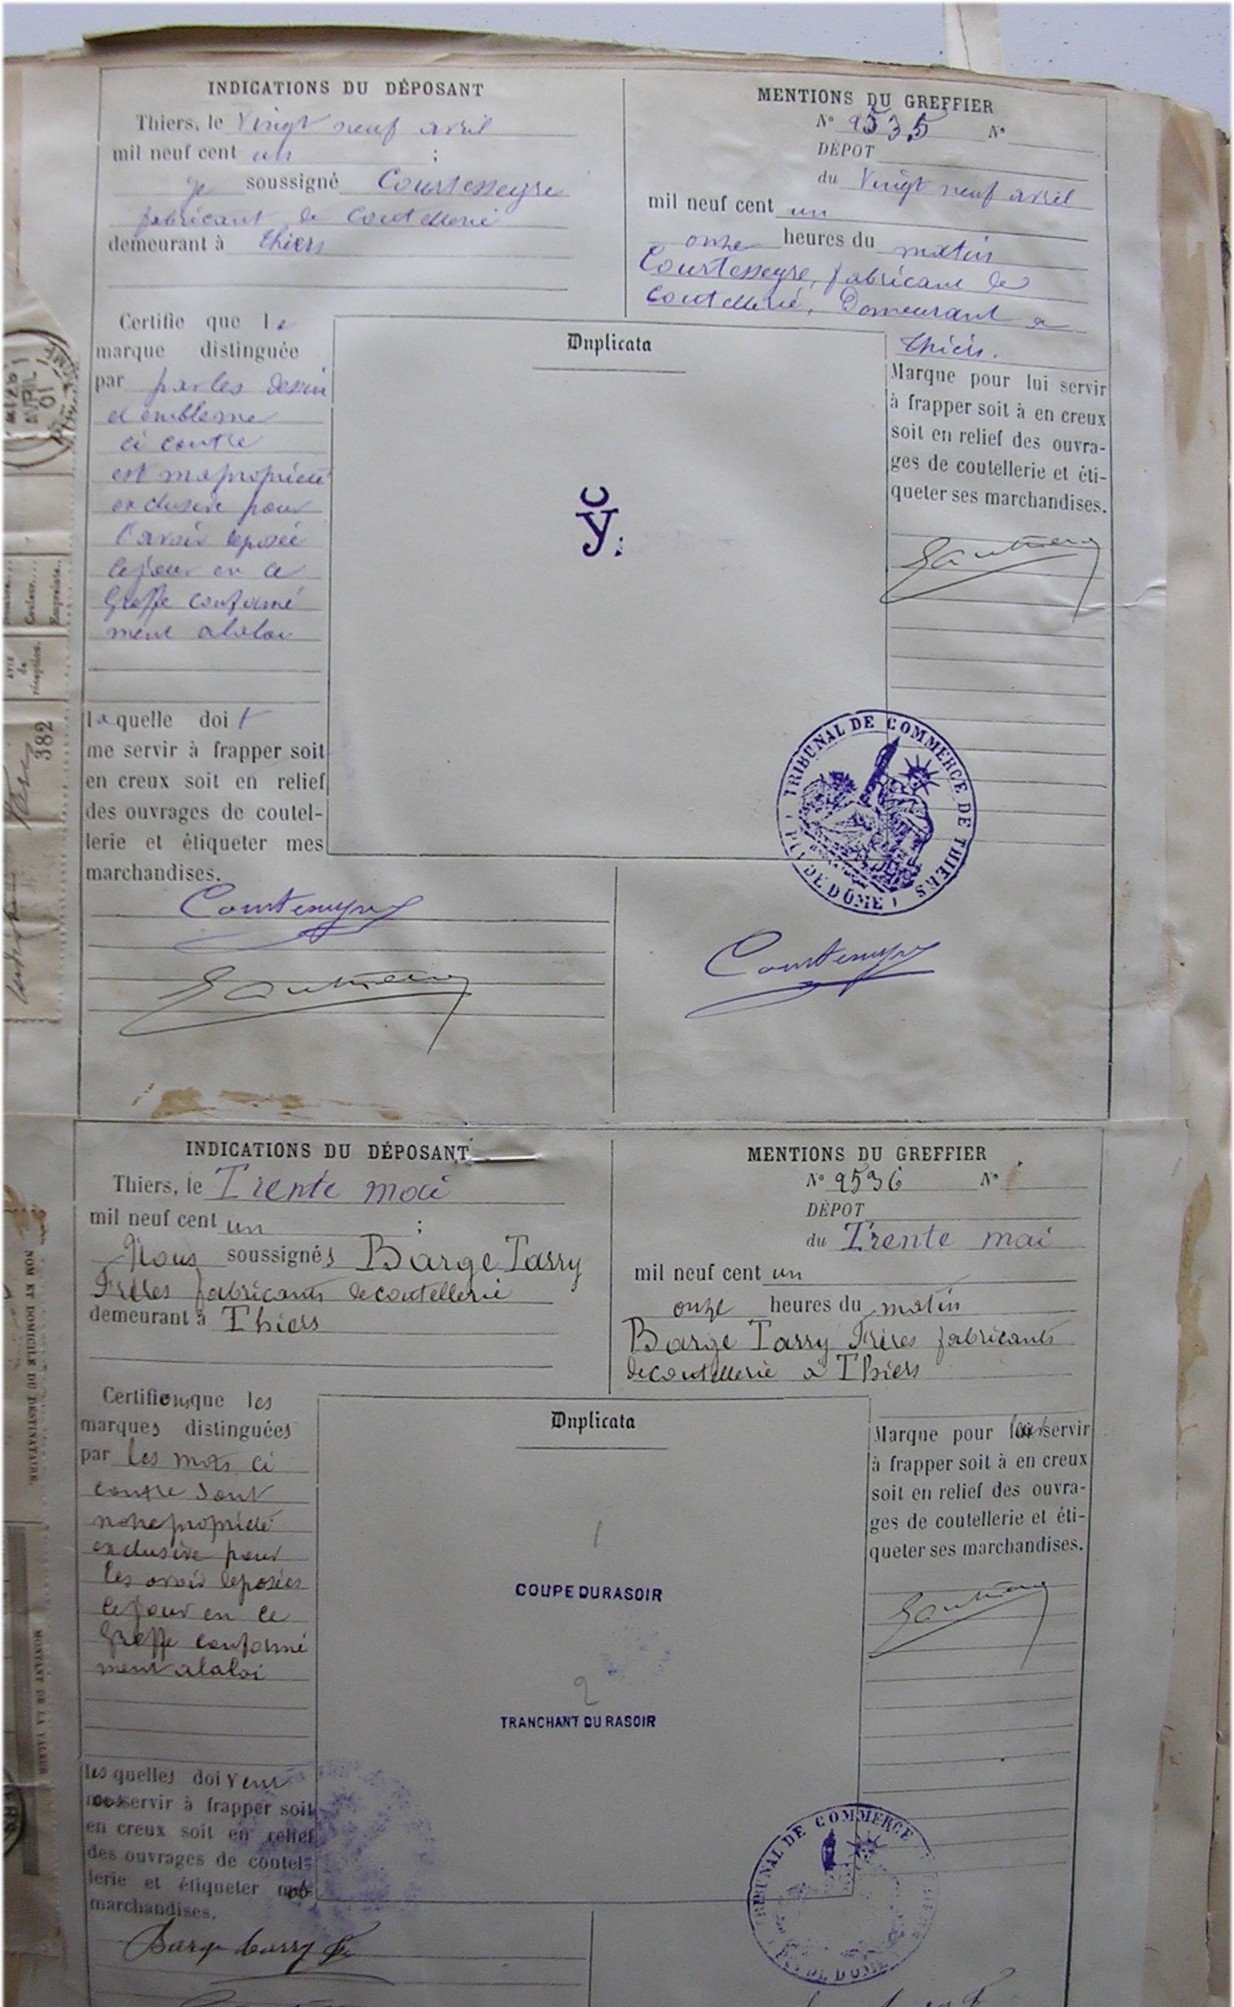 INDICATIONS DU DÉPOSANT
Thiers, le Vingt neuf avril
mil neuf cent un ;
je soussigné Courtesseyre
fabricant de coutellerie
demeurant à thiers
Certifie que la
marque distinguée
par par les dessin
et embleme
ci contre
est ma propriété
exclusive pour
l'avoir déposée
ce jour en ce
Greffe conformé
ment a la loi
laquelle doit
me servir à frapper soit
en creux soit en relief
des ouvrages de coutel-
lerie et étiqueter mes
marchandises.
Courtesseyre
MENTIONS DU GREFFIER
N° 2535 N°
DÉPOT
du Vingt neuf avril
mil neuf cent un
onze heures du matin
Courtesseyre, fabricant de
coutellerie, Demeurant a
thiers.
Duplicata
Y
Marque pour lui servir
à frapper soit à en creux
soit en relief des ouvra-
ges de coutellerie et éti-
queter ses marchandises.
TRIBUNAL DE COMMERCE DE THIERS
(PUY DE DÔME)
Courtesseyre
AVRIL
01
382
INDICATIONS DU DÉPOSANT
Thiers, le Trente mai
mil neuf cent un ;
Nous soussignés Barge Tarry
Frères fabricants de coutellerie
demeurant à Thiers
Certifions que les
marques distinguées
par les mots ci
contre sont
notre propriété
exclusive pour
les avoir déposées
ce jour en ce
Greffe conformé
ment a la loi
lesquelles doivent
nous servir à frapper soit
en creux soit en relief
des ouvrages de coutel-
lerie et étiqueter nos
marchandises.
Barge tarry fr
MENTIONS DU GREFFIER
N° 2536 N°
DÉPOT
du Trente mai
mil neuf cent un
onze heures du matin
Barge Tarry Frères fabricants
de coutellerie a Thiers
Duplicata
1
COUPE DU RASOIR
2
TRANCHANT DU RASOIR
Marque pour leur servir
à frapper soit à en creux
soit en relief des ouvra-
ges de coutellerie et éti-
queter ses marchandises.
TRIBUNAL DE COMMERCE
PUY DE DOME
NOM ET DOMICILE DU DESTINATAIRE.
MONTANT DE LA VALEUR